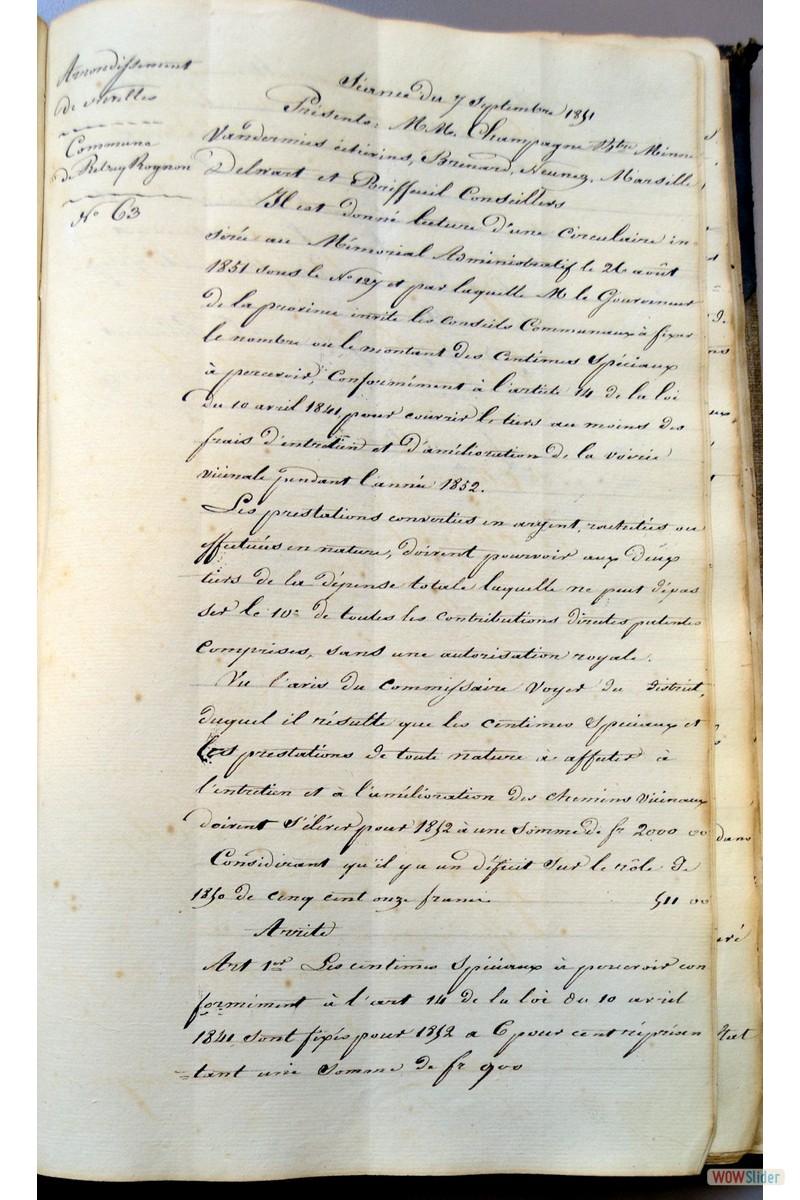 Arrondissement
de Nivelles
Commune
de Rebecq Rognon
N° 63
Séance du 7 Septembre 1851
Présents: M.M. Champagne Bgtre Minne
Vandermies échevins, Brenard, Neunez, Marsille
Delwart et Briffeuil Conseillers
Il est donné lecture d'une circulaire in
sérée au Mémorial Administratif le 26 août
1851 sous le N° 127 et par laquelle M. le Gouverneur
de la province invite les conseils Communaux à fixer
le nombre ou le montant des Centimes Spéciaux
à percevoir, Conformément à l'article 14 de la loi
du 10 avril 1841, pour couvrir le tiers au moins des
frais d'entretien et d'amélioration de la voirie
vicinale pendant l'année 1852.
Les prestations converties en argent, rachetées ou
effectuées en nature, doivent pourvoir aux deux
tiers de la dépense totale laquelle ne peut dépas
ser le 10e de toutes les contributions directes patentes
comprises, sans une autorisation royale.
Vu l'avis du Commissaire Voyer du District,
duquel il résulte que les centimes Spéciaux et
les prestations de toute nature à affecter à
l'entretien et à l'amélioration des chemins vicinaux
doivent s'élever pour 1852 à une Somme de fr 2000 00
Considérant qu'il y a un déficit sur le rôle de
1850 de cinq cent onze francs. 511 00
Arrête
Art 1er Les centimes Spéciaux à percevoir con
formément à l'art 14 de la loi du 10 avril
1841 sont fixés pour 1852 a 6 pour cent représen
=tant une Somme de fr 900
dans
WOWSlider